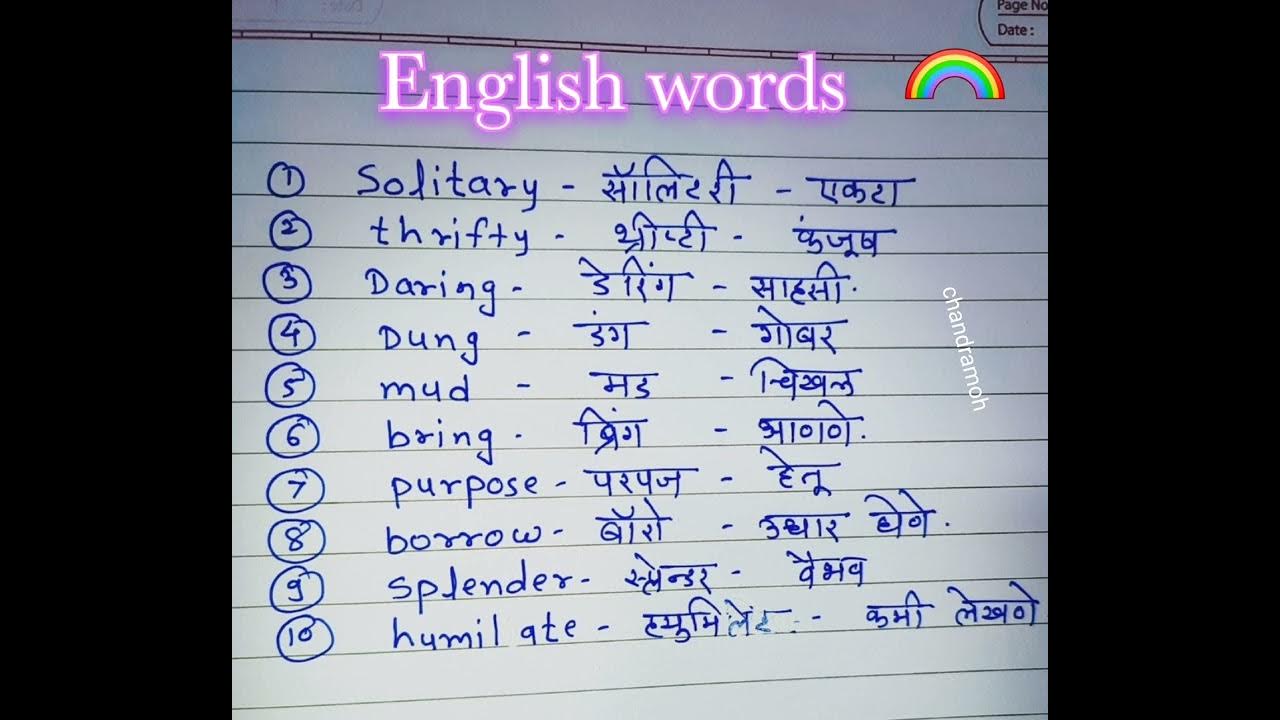 Page No
Date :
English words
① Solitary - सॉलिटरी - एकटा
② thrifty - थ्रीप्टी - कंजूष
③ Daring - डेरिंग - साहसी.
④ Dung - डंग - गोबर
⑤ mud - मड - चिखल
⑥ bring - ब्रिंग - आणणे.
⑦ purpose - परपज - हेतू
⑧ borrow - बॉरो - उधार घेणे.
⑨ splender - स्प्लेन्डर - वैभव
⑩ humilate - ह्युमिलेट - कमी लेखणे
chandramoh